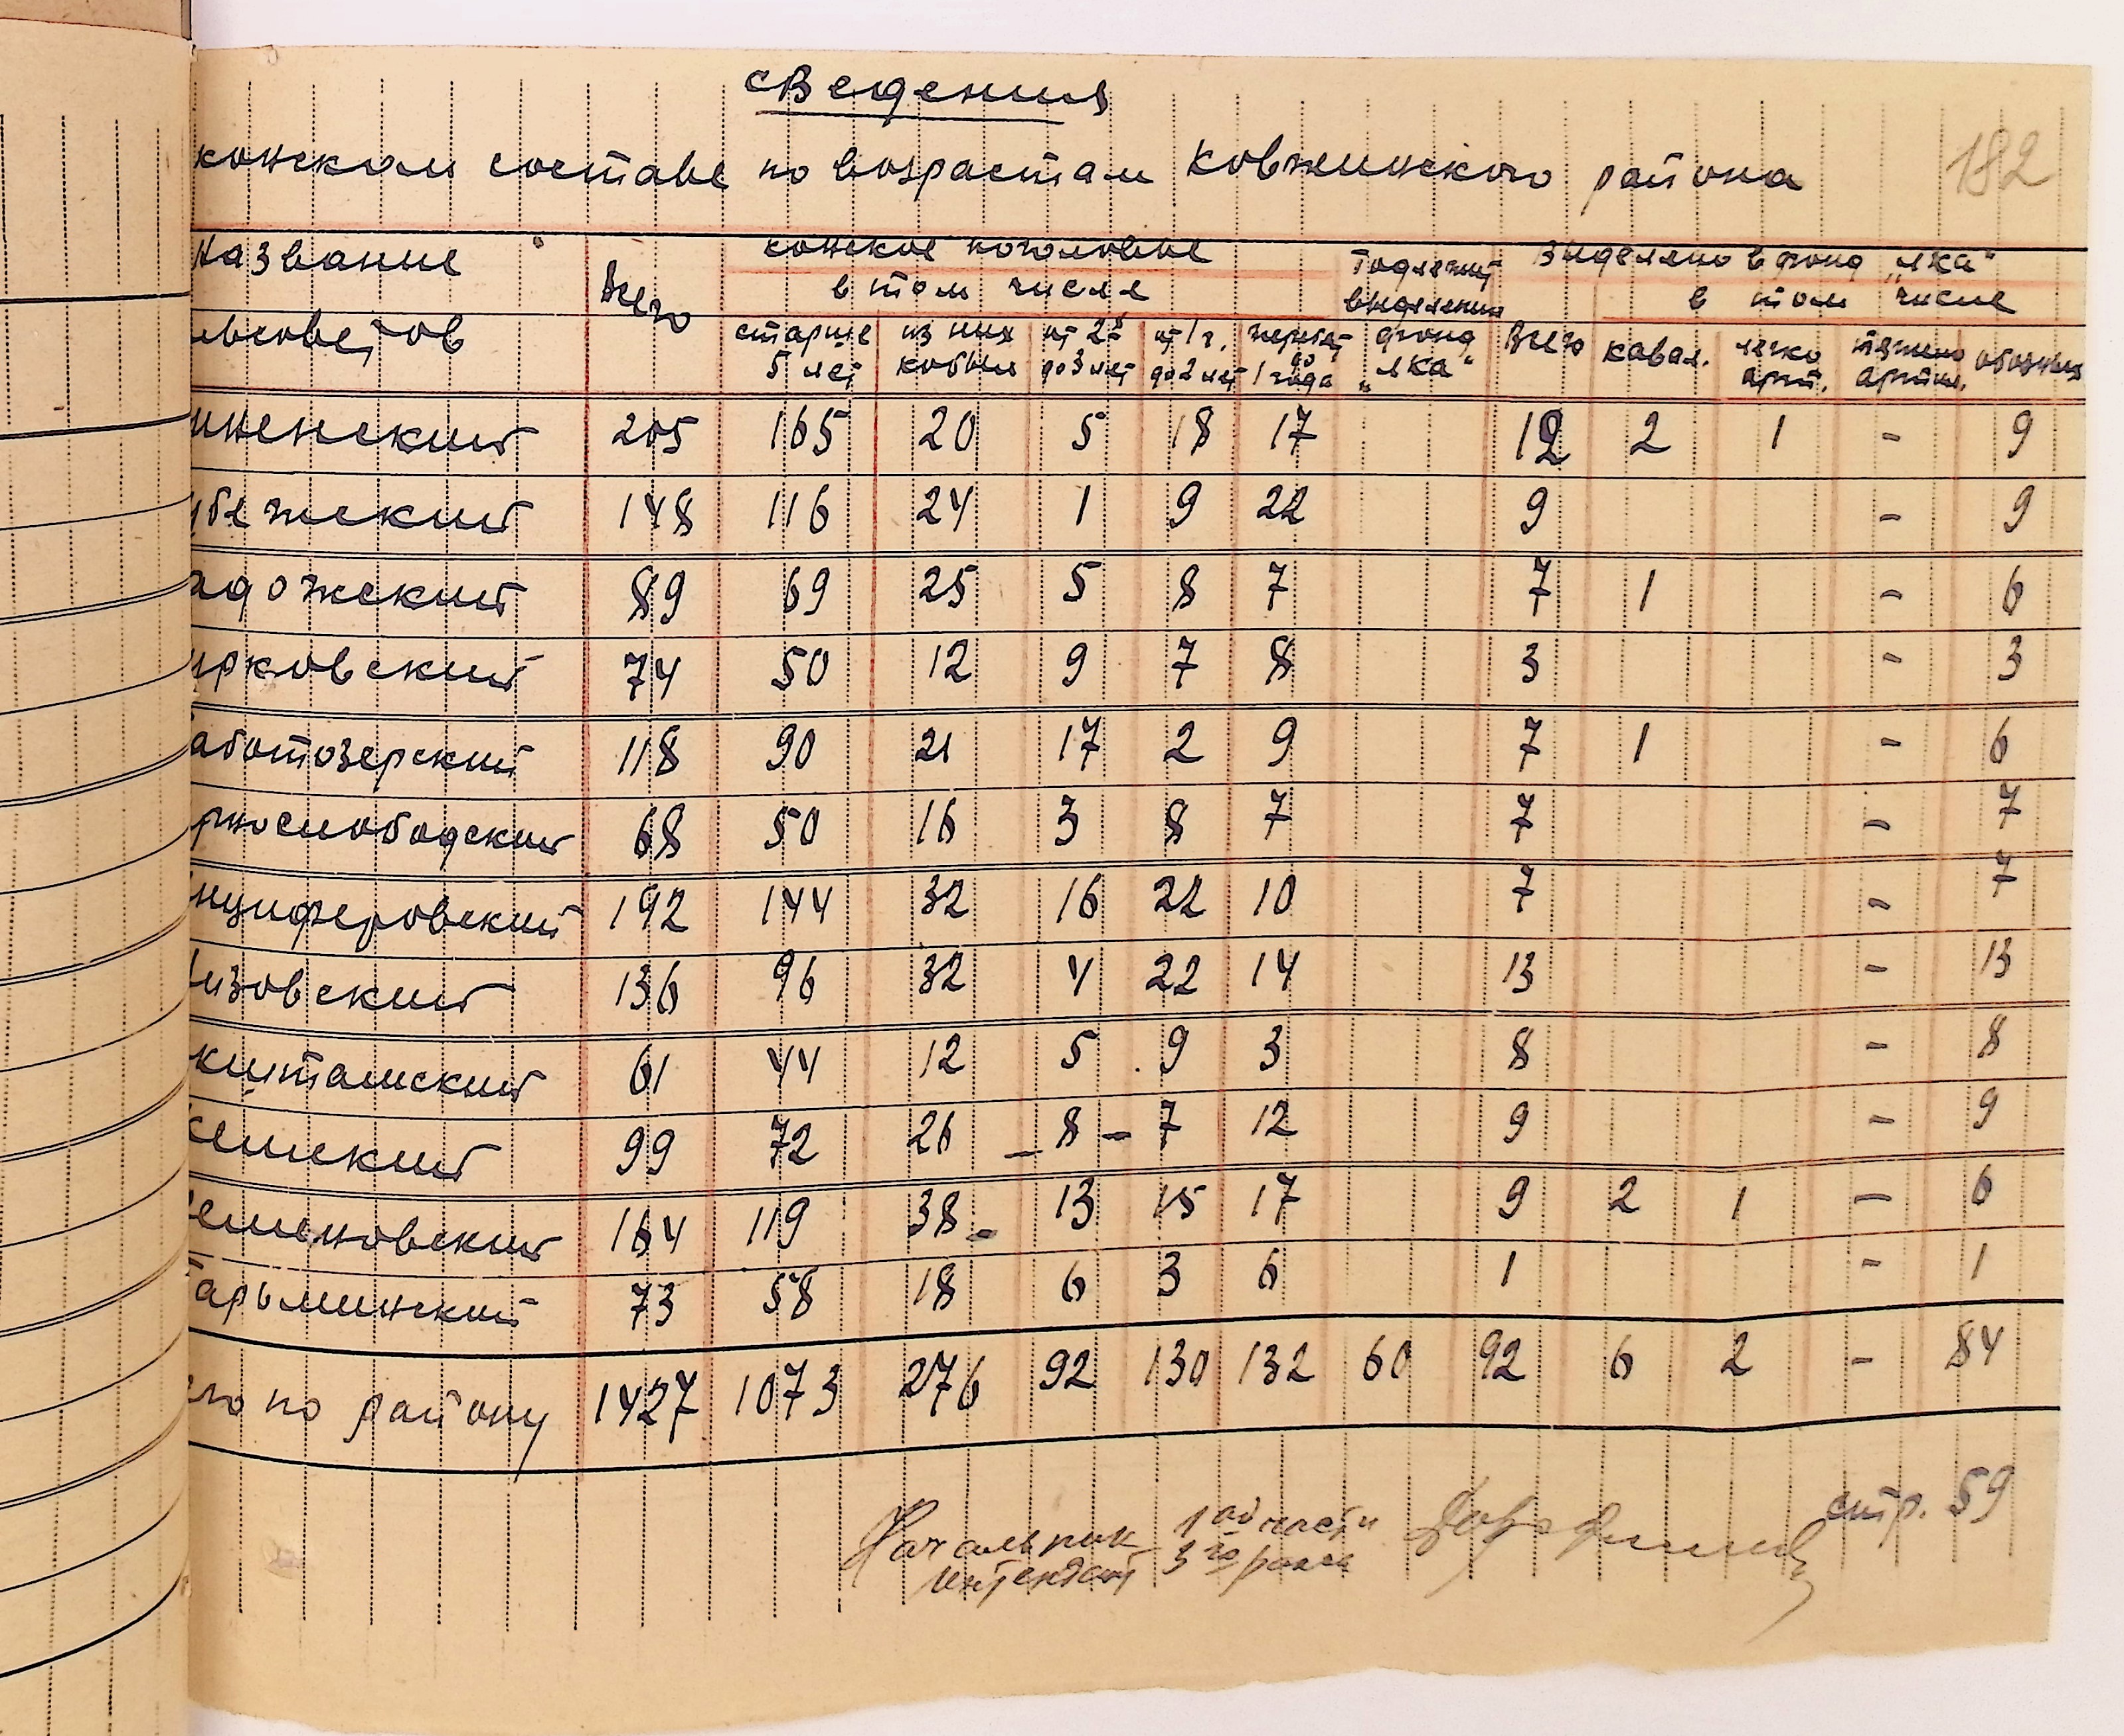 сведения
конском составе по возрастам Ковжинского района
182
название Всего конское поголовье Подлежит Выделено в фонд „лка"
в том числе выделению в том числе
льсоветов старше 5 лет из них кобыл от 2х до 3 лет от 1 г. до 2 лет жеребят до 1 года фонд „лка" Всего кавал. легко арт. тяжело артил. обозных
иненский 205 165 20 5 18 17 12 2 1 - 9
убежский 148 116 24 1 9 22 9 - 9
адожский 89 69 25 5 8 7 7 1 - 6
ирковский 74 50 12 9 7 8 3 - 3
аботозерский 118 90 21 17 2 9 7 1 - 6
рнослободский 68 50 16 3 8 7 7 - 7
нциферовский 192 144 32 16 22 10 7 - 7
изовский 136 96 32 4 22 14 13 - 13
киташский 61 44 12 5 9 3 8 - 8
кешский 99 72 26 - 8 - 7 12 9 - 9
еменовский 164 119 38 - 13 15 17 9 2 1 - 6
арьминский 73 58 18 6 3 6 1 - 1
его по району 1427 1073 276 92 130 132 60 92 6 2 - 84
Начальник 1ой части
интендант 3го ранга
стр. 59